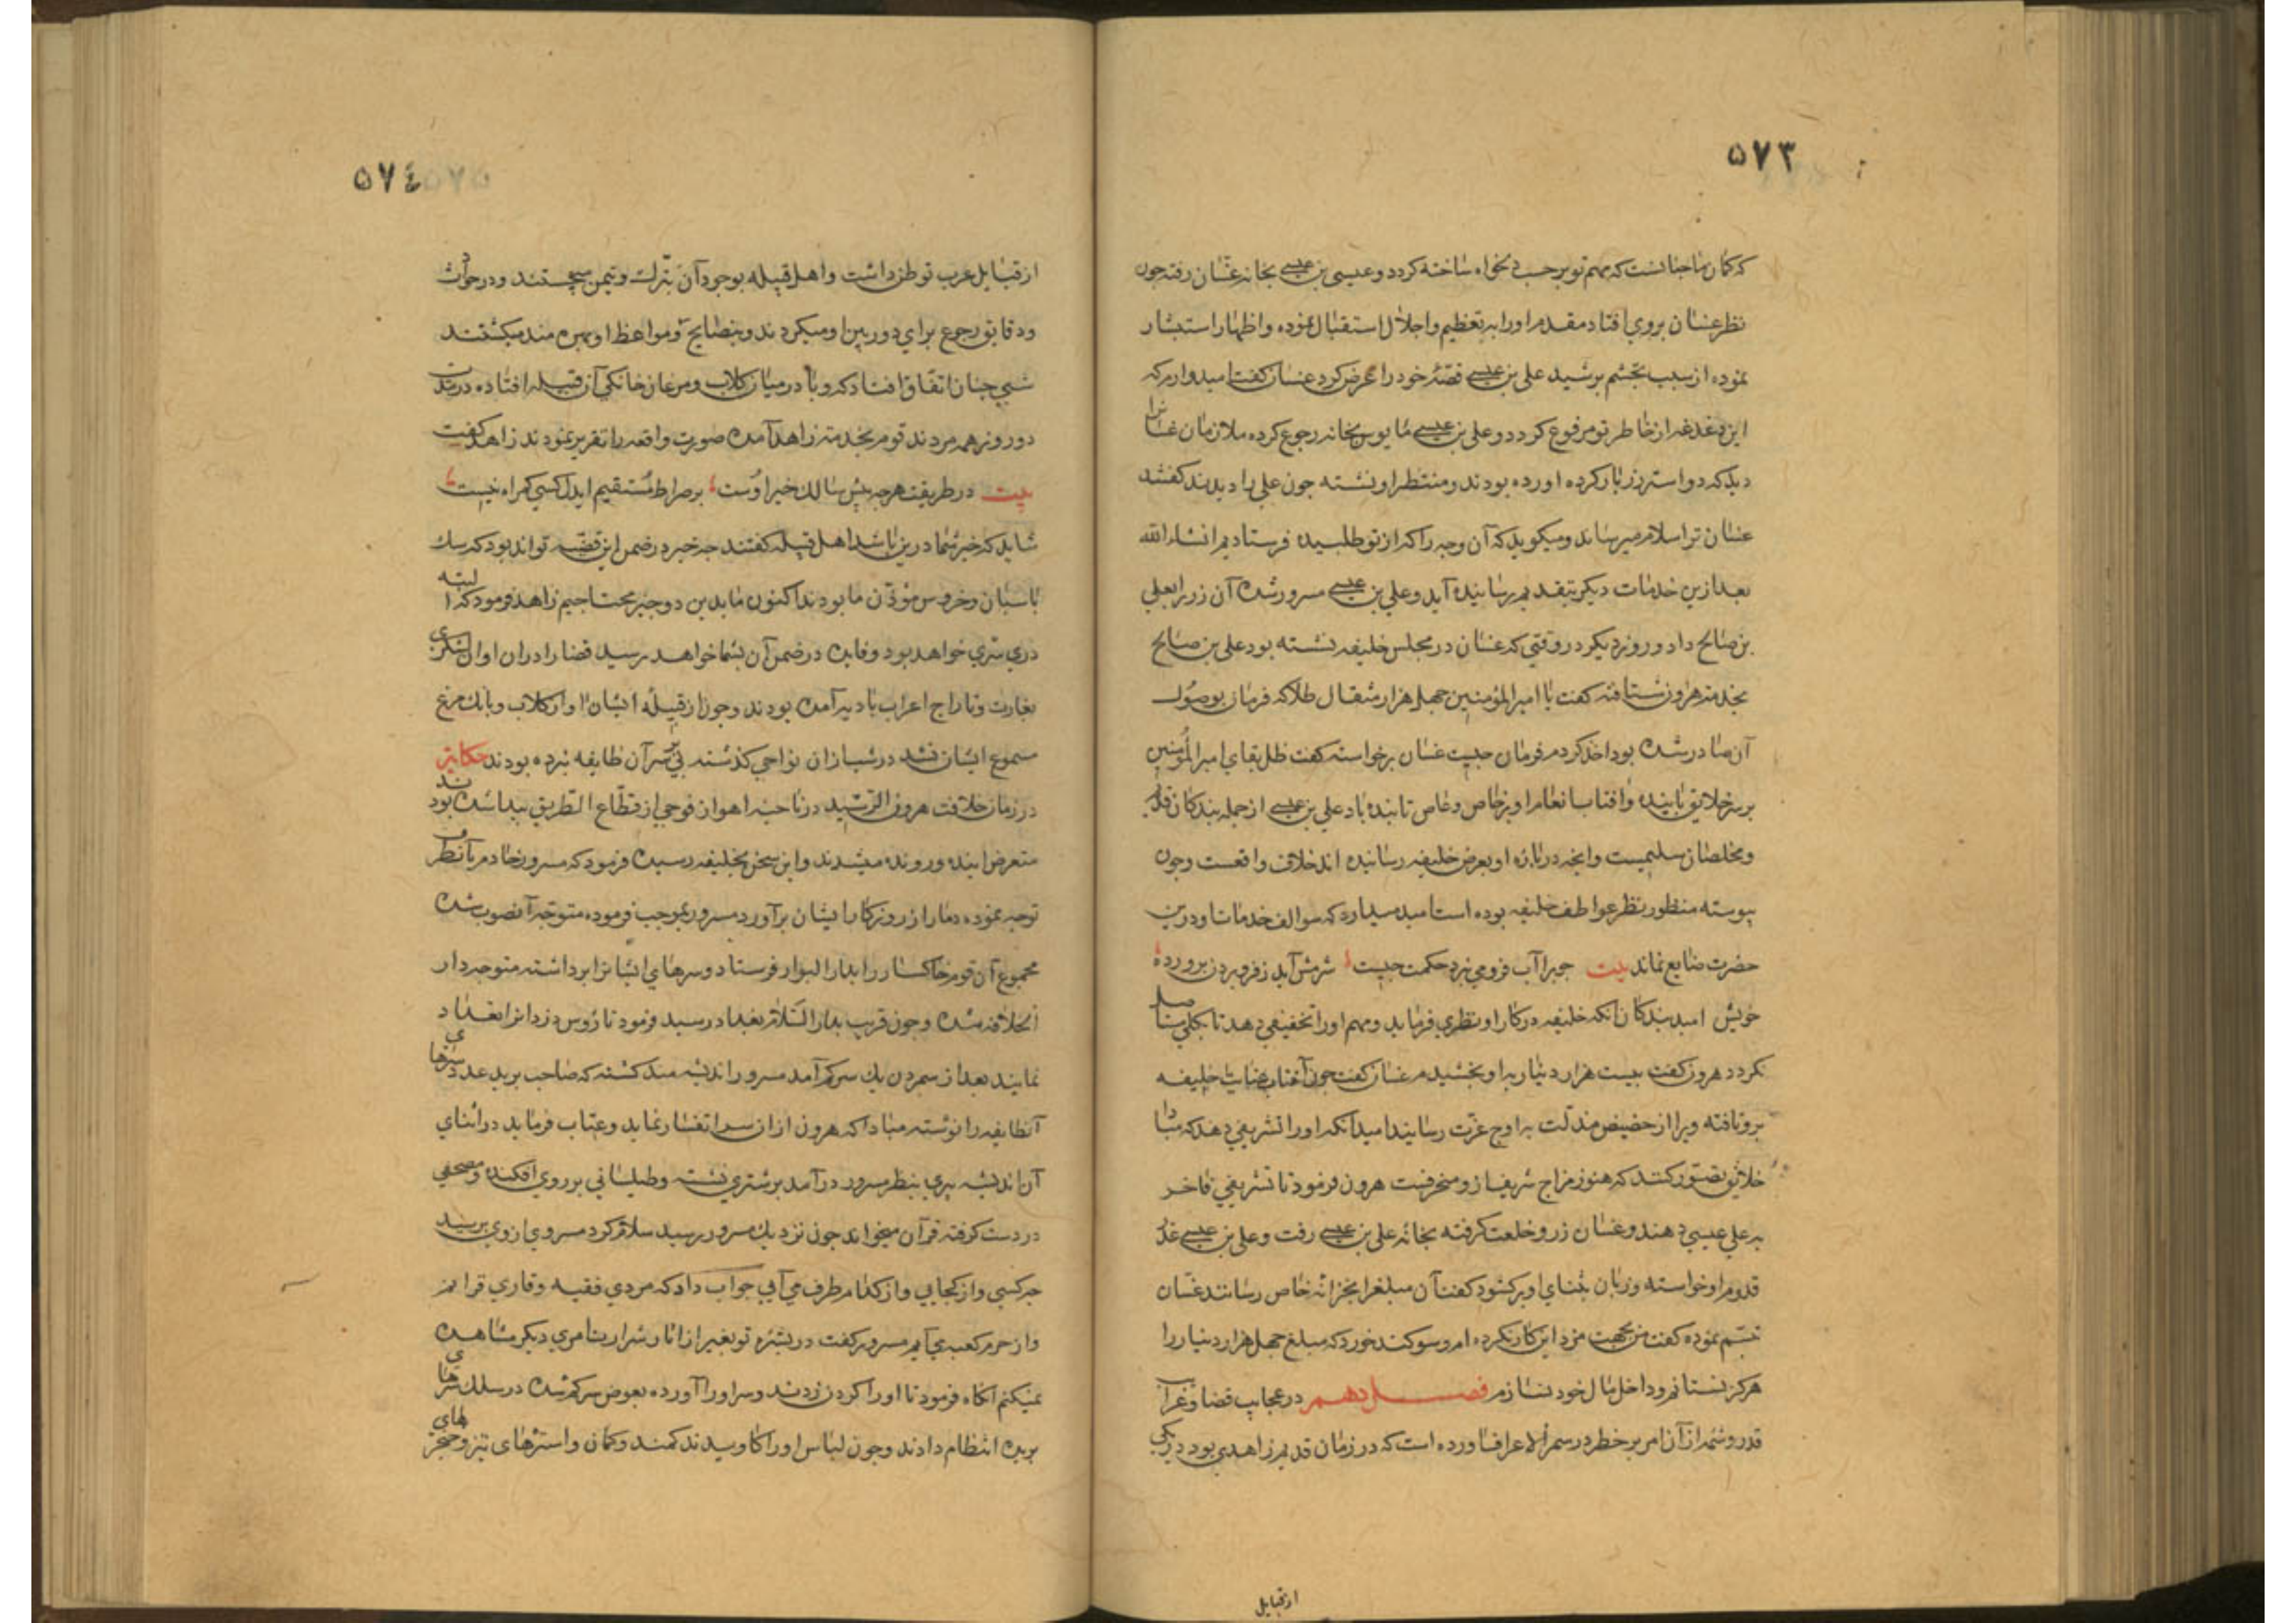 ۵۷۳
که کمان ما چنانست که مهم تو برحسب دلخواه ساخته کردد و عیسی بن عیسی بخانه غسان رفته جون
نظر غسان بروی افتاد مقدم او را به تعظیم و اجلال استقبال نموده و اظهار استبشار
نموده از سبب تجشم برسید علی بن عیسی قصّه خود را عرض کرد غسان کفت امیدوارم که
این دغدغه از خاطر تو مرفوع کردد و علی بن عیسی مایوس بخانه رجوع کرده ملازمان غسان را
دید که دو استر زر بار کرده اورده بودند و منتظر او نشسته جون علی را دیدند کفتند
غسان ترا سلام میرساند و میکوید که آن وجه را که از تو طلبیده فرستادیم انشاء الله
بعد ازین خدمات دیکر بتقدیم رسانیده آید و علی بن عیسی مسرور شده آن زر را بعلی
بن صالح داد و روز دیکر در وقتی که غسان در مجلس خلیفه نشسته بود علی بن صالح
بخدمت هرون شتافته کفت یا امیر المؤمنین جهل هزار مثقال طلا که فرمان بوصول
آن صادر شده بود اخذ کردم فرمان چیست غسان برخواسته کفت ظل بقای امیر المؤمنین
بر سر خلایق پاینده و افتاب انعام او بر خاص و عام تابنده باد علی بن عیسی از جمله بندکان قدیم
و مخلصان سلیمست و انچه در باره او بعرض خلیفه رسانیده اند خلاف واقعست و چون
پیوسته منظور نظر عواطف خلیفه بوده است امید میدارد که سوالف خدمات او درین
حضرت ضایع نماند بیت جوبرا آب فرو می نبرد حکمت چیست شرمش آید ز فرو بردن برورده
خویش امید بندکان انکه خلیفه در کار او نظری فرماید و مهم او را تخفیفی دهد تا بکلی مستاصل
نکردد هرون کفت بیست هزار دینار به او بخشیدم غسان کفت چون آفتاب عنایت خلیفه
برو تافته ویرا از حضیض مذلت به اوج عزت رسانید امید انکه او را تشریفی دهد که مبادا
خلایق تصور کنند که هنوز مزاج شریف از و منحرفست هرون فرمود تا تشریفی فاخر
به علی عیسی دهند و غسان زر و خلعت کرفته بخانه علی بن عیسی رفت و علی بن عیسی عذر
قدوم او خواسته و زبان بثنای او برکشود کفت آن مبلغ را بخزانه خاص رسانند غسان
تبسم نموده کفت من بجهت مزد این کار نکرده ام و سوکند خورد که مبلغ جهل هزار دینار را
هرکز نستانم و داخل مال خود نسازم فصل دهم در عجایب قضا و غرایب
قدر و شمه از آن امر پر خطر در سمر الاعراف اورده است که در زمان قدیم زاهدی بود در یکی
از قبایل
۵۷٤
از قبایل عرب توطن داشت و اهل قبیله بوجود آن تبرک و تیمن میجستند و در حوادث
و دقایق رجوع برای دوربین او میکردند و بنصایح و مواعظ او بهره مند میکشتند
شبی چنان اتفاق افتاد که وبا در میان کلاب و مرغان خانکی آن قبیله افتاده در مدت
دو روز همه مردند قوم بخدمت زاهد آمده صورت واقعه را تقریر نمودند زاهد کفت
بیت در طریقت هرچه پیش سالک خیر اوست بر صراط مستقیم ایدل کسی کمراه نیست
شاید که خیر شما درین باشد اهل قبیله کفتند چه خیر در ضمن این قضیه تواند بود که سک
پاسبان و خروس مؤذن ما بودند اکنون ما بدین دو چیز محتاجیم زاهد فرمود که البته
درین سری خواهد بود و فایده در ضمن آن بشما خواهد رسید قضا را در ان اوان لشکری
بغارت و تاراج اعراب بادیه آمده بودند و چون از قبیله ایشان اواز کلاب و بانک مرغ
مسموع ایشان نشد در شب از ان نواحی کذشته پی بر سر آن طایفه نبرده بودند حکایت
در زمان خلافت هرون الرشید در ناحیه اهواز فوجی از قطّاع الطریق پیدا شده بودند
متعرض اینده و رونده میشدند و این سخن بخلیفه رسیده فرمود که مسرور خادم بآنطرف
توجه نموده دمار از روزکار ایشان برآورد مسرور بموجب فرموده متوجه آنصوب شده
مجموع آن قوم خاکسار را بدار البوار فرستاد و سرهای ایشانرا برداشته متوجه دار
الخلافه شده و چون قریب بدار السلام بغداد رسید فرمود تا رؤس دزدانرا تعداد
نمایند بعد از شمردن یک سر کم آمد مسرور اندیشه مند کشته که صاحب برید عدد سرهای
آنطایفه را نوشته مبادا که هرون از ان سر استفسار نماید و عتاب فرماید در اثنای
آن اندیشه پیری بنظر مسرور درآمد بر شتری نشسته و طیلسانی بر روی افکنده و مصحفی
در دست کرفته قرآن میخواند چون نزدیک مسرور رسید سلام کرد مسرور از وی برسید
چه کسی و از کجایی و از کدام طرف می آیی جواب داد که مردی فقیه و قاری قرانم
و از حرم کعبه می آیم مسرور کفت در بشره تو بغیر از اثار شرارت امری دیکر مشاهده
نمیکنم انکاه فرمود تا او را کردن زدند و سر او را آورده بعوض سر کم شده در سلک سرهای
بریده انتظام دادند و چون لباس او را کاویدند کمند و کمان و استرهای تیز و خنجرهای